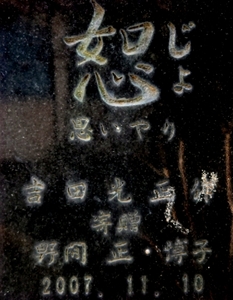 恕じょ
思いやり
吉田光正作
寄贈
野間 正・淳子
2007. 11. 10